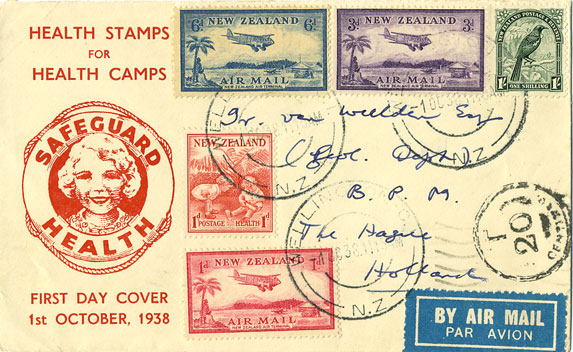 HEALTH STAMPS
FOR
HEALTH CAMPS
SAFEGUARD
HEALTH
FIRST DAY COVER
1st OCTOBER, 1938
6d NEW ZEALAND 6d
AIR MAIL
NEW ZEALAND AIR TERMINAL
3d NEW ZEALAND 3d
AIR MAIL
NEW ZEALAND AIR TERMINAL
NEW ZEALAND POSTAGE & REVENUE
1/- ONE SHILLING 1/-
NEW ZEALAND
1d POSTAGE HEALTH 1d
1d NEW ZEALAND 1d
AIR MAIL
NEW ZEALAND AIR TERMINAL
van
B. P. M.
The Hague
Holland
N.Z
N.Z
N.Z
T
20
BY AIR MAIL
PAR AVION